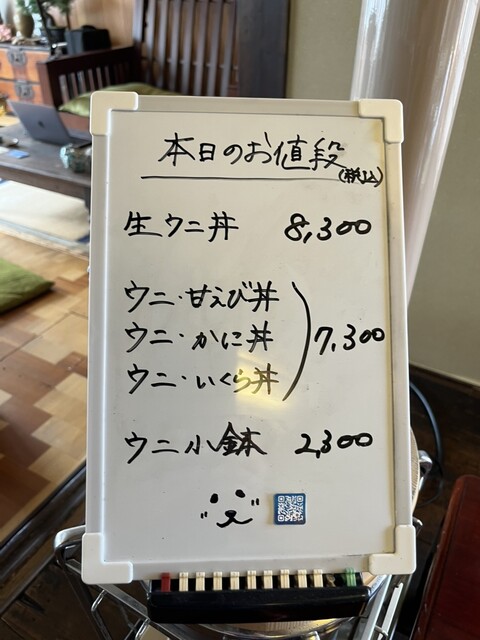 本日のお値段
(税込)
生ウニ丼 8,300
ウニ・甘えび丼
ウニ・かに丼 7,300
ウニ・いくら丼
ウニ小鉢 2,300